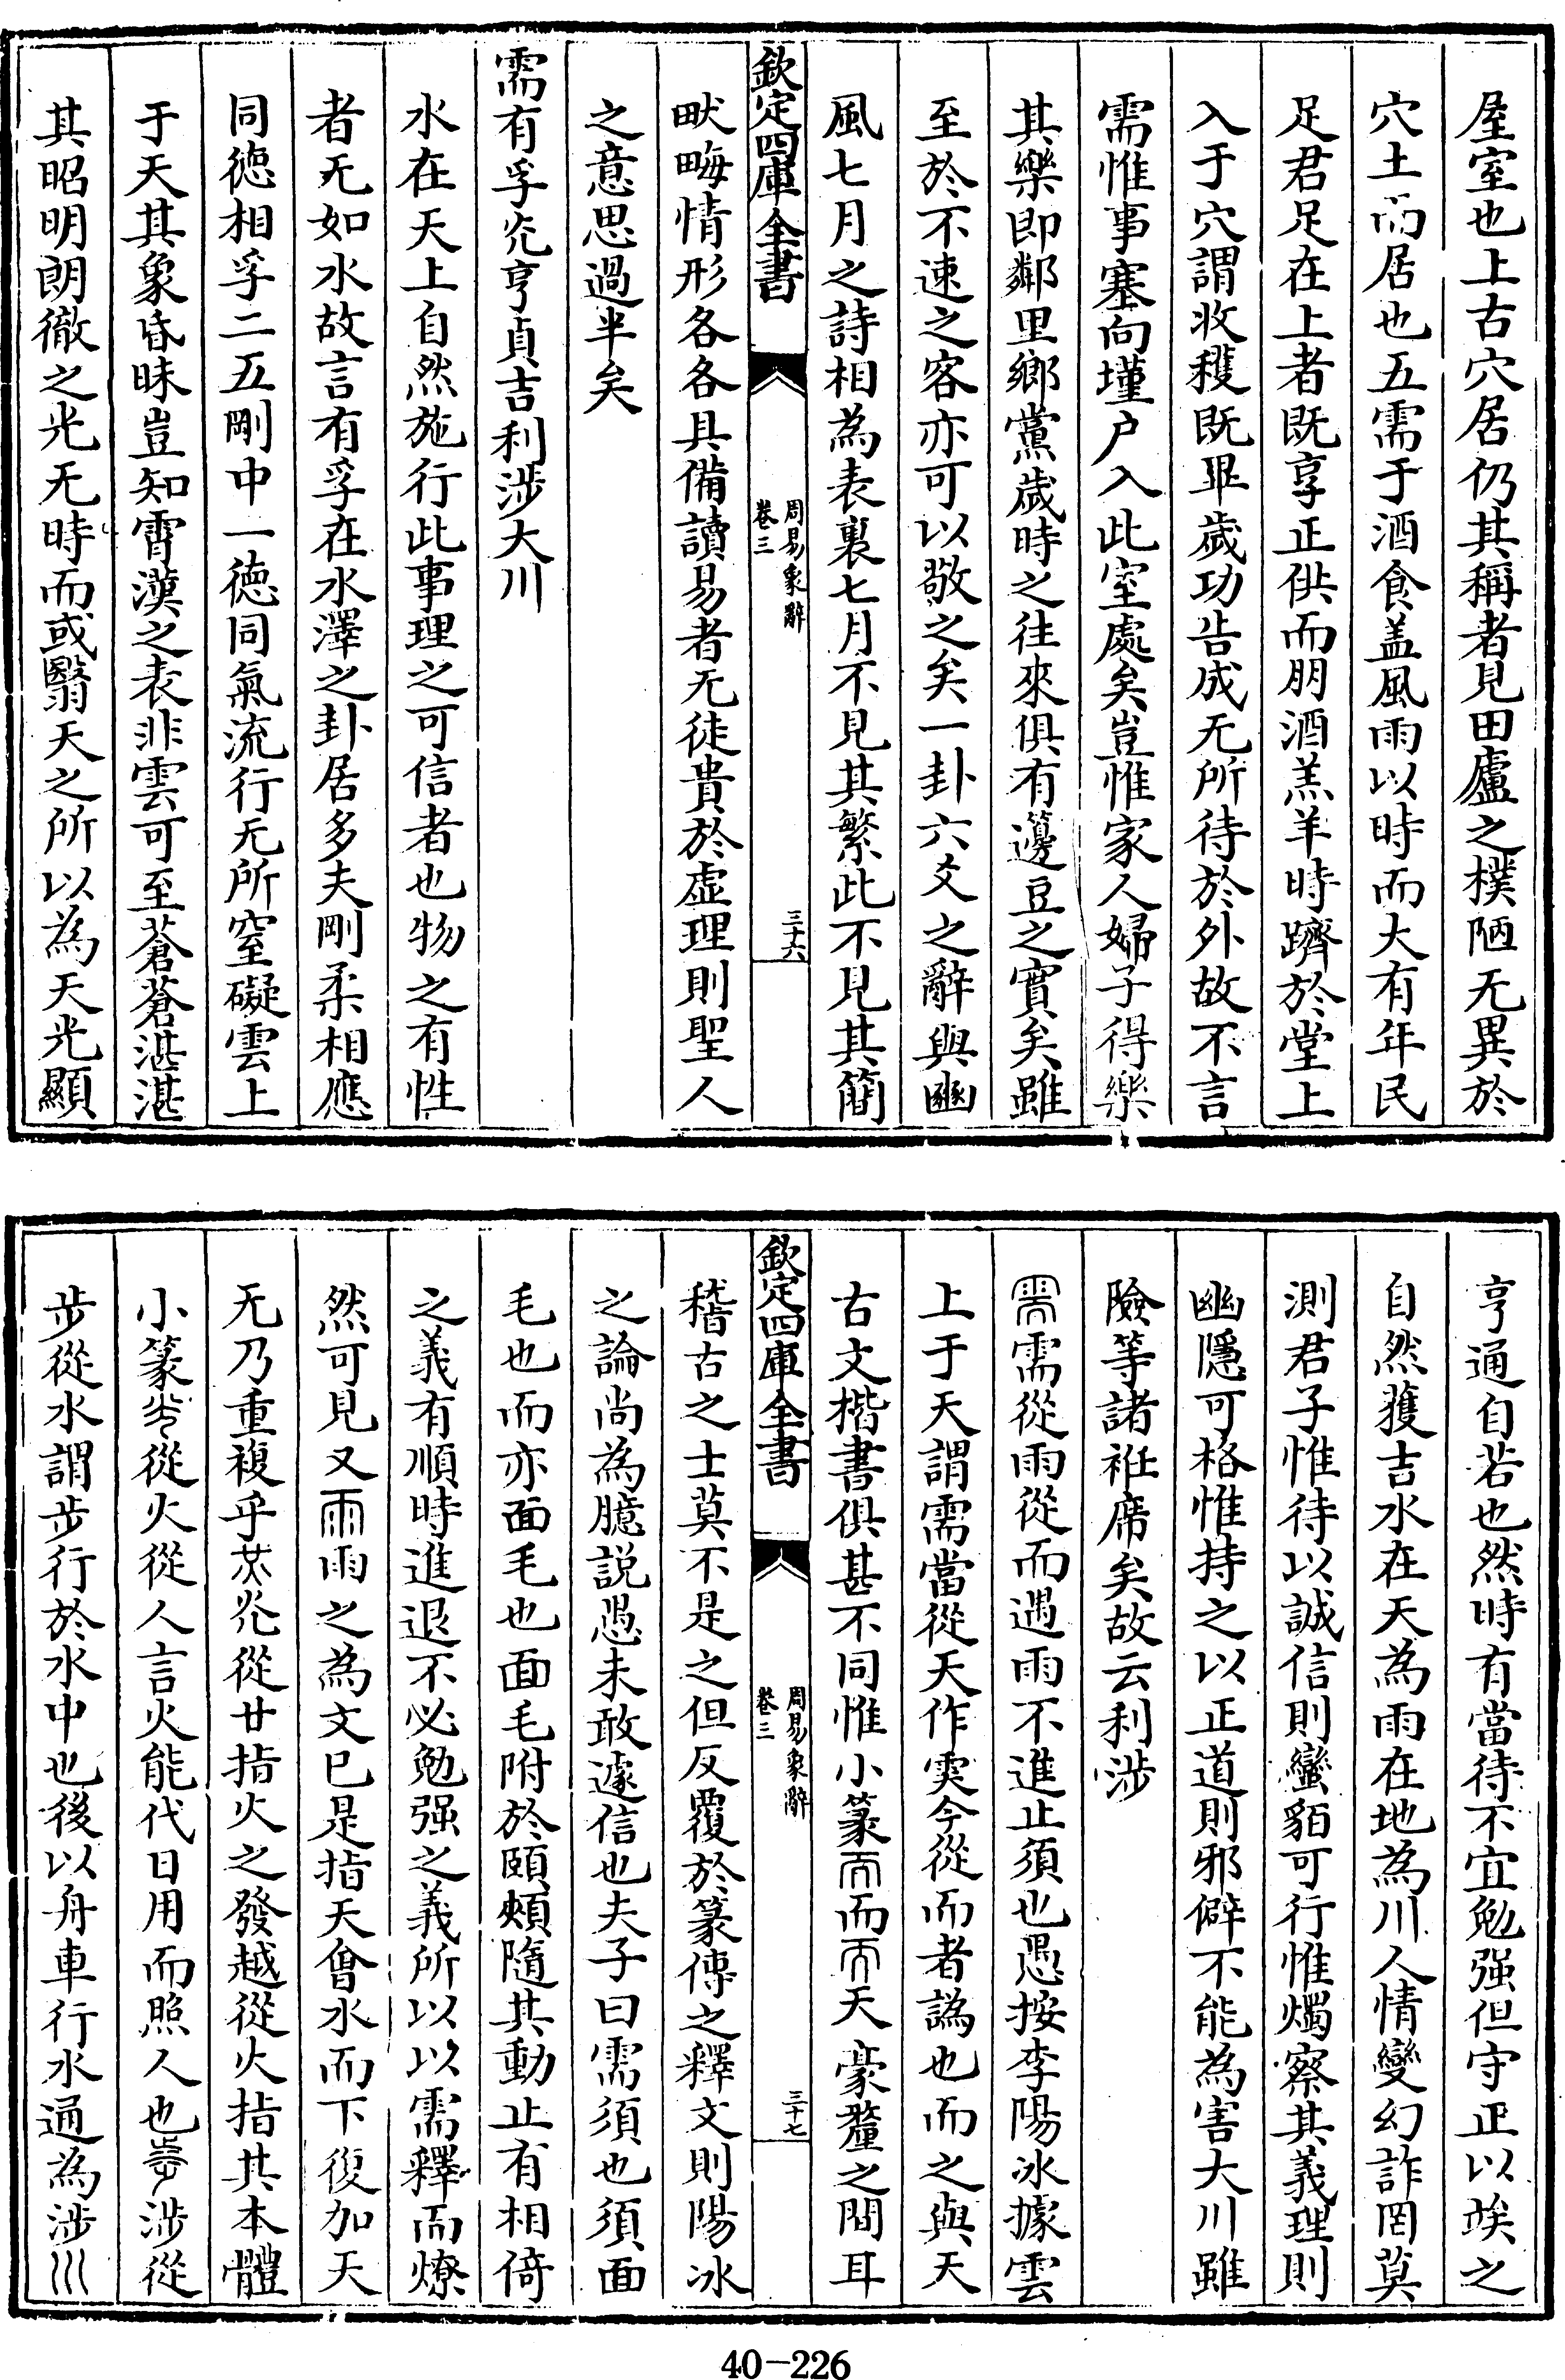 屋室也上古穴居仍其稱者見田廬之樸陋无異於
穴土而居也五需于酒食盖風雨以時而大有年民
足君足在上者既享正供而朋酒羔羊時躋於堂上
入于穴謂收穫既畢歲功告成无所待於外故不言
需惟事塞向墐户入此室處矣豈惟家人婦子得樂
其樂即鄰里鄉黨歲時之徃來俱有籩豆之實矣雖
至於不速之客亦可以敬之矣一卦六爻之辭與豳
風七月之詩相為表裏七月不見其繁此不見其簡
欽定四庫全書
周易象辭
卷三
三十六
畎畮情形各各具備讀易者无徒貴於虛理則聖人
之意思過半矣
需有孚灮亨貞吉利涉大川
水在天上自然施行此事理之可信者也物之有性
者无如水故言有孚在水澤之卦居多夫剛柔相應
同德相孚二五剛中一德同氣流行无所窒礙雲上
于天其象昏昧豈知霄漢之表非雲可至蒼蒼湛湛
其昭明朗徹之光无時而或翳天之所以為天光顯
亨通自若也然時有當待不宜勉强但守正以竢之
自然獲吉水在天為雨在地為川人情變幻詐罔莫
測君子惟待以誠信則蠻貊可行惟燭察其義理則
幽隱可格惟持之以正道則邪僻不能為害大川雖
險等諸袵席矣故云利涉
需從雨從而遇雨不進止須也愚按李陽冰據雲
上于天謂需當從天作䨙今從而者譌也而之與天
古文楷書俱甚不同惟小篆而天豪釐之間耳
欽定四庫全書
周易象辭
卷三
三十七
稽古之士莫不是之但反覆於篆傳之釋文則陽冰
之論尚為臆説愚未敢遽信也夫子曰需須也須面
毛也而亦面毛也面毛附於頤頰隨其動止有相倚
之義有順時進退不必勉强之義所以以需釋而燎
然可見又雨之為文已是指天會水而下復加天
无乃重複乎灮從廿指火之發越從火指其本體
小篆從火從人言火能代日用而照人也涉從
步從水謂步行於水中也後以舟車行水通為涉